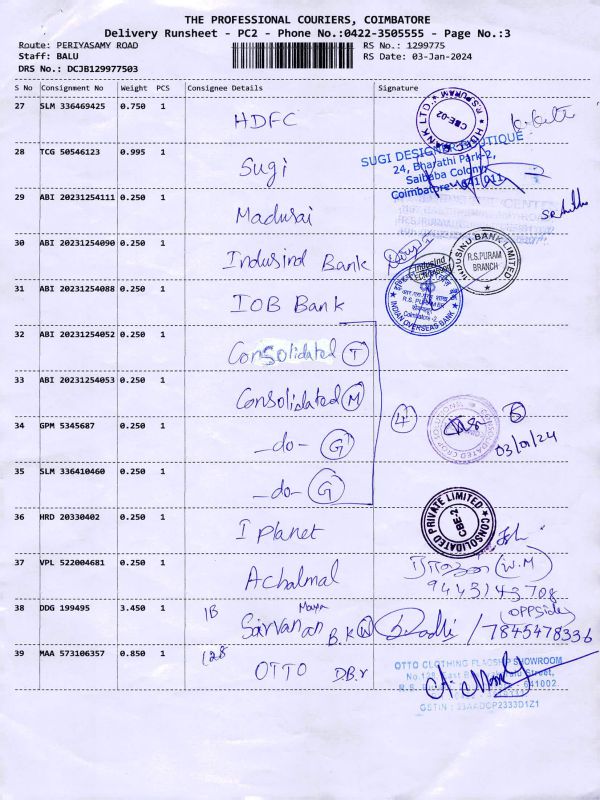 THE PROFESSIONAL COURIERS, COIMBATORE
Delivery Runsheet - PC2 - Phone No.:0422-3505555 - Page No.:3
Route: PERIYASAMY ROAD RS No.: 1299775
Staff: BALU RS Date: 03-Jan-2024
DRS No.: DCJB129977503
S No Consignment No Weight PCS Consignee Details Signature
27 SLM 336469425 0.750 1
HDFC
R.S.PURAM
CBE-02
28 TCG 50546123 0.995 1
Sugi
SUGI DESIGNER BOUTIQUE
24, Bharathi Park-2,
Saibaba Colony
Coimbatore - 641 011
29 ABI 20231254111 0.250 1
Madusai
30 ABI 20231254090 0.250 1
Indusind Bank
INDUSIND BANK LIMITED
R.S.PURAM
BRANCH
31 ABI 20231254088 0.250 1
IOB Bank
INDIAN OVERSEAS BANK
R.S. PURAM
Coimbatore-2
32 ABI 20231254052 0.250 1
Consolidated T
33 ABI 20231254053 0.250 1
Consolidated M
34 GPM 5345687 0.250 1
-do- G
4
03/01/24
35 SLM 336410460 0.250 1
-do- G
36 HRD 20330402 0.250 1
I planet
CONSOLIDATED PRIVATE LIMITED
CBE-2
37 VPL 522004681 0.250 1
Achalmal
(W.M)
9443143708
38 DDG 199495 3.450 1
1B
Sarvanan B.K
(OPPside)
7845478336
39 MAA 573106357 0.850 1
128
OTTO D.B.r
OTTO CLOTHING FLAGSHIP SHOWROOM
GSTIN : 33AADCP2333D1Z1